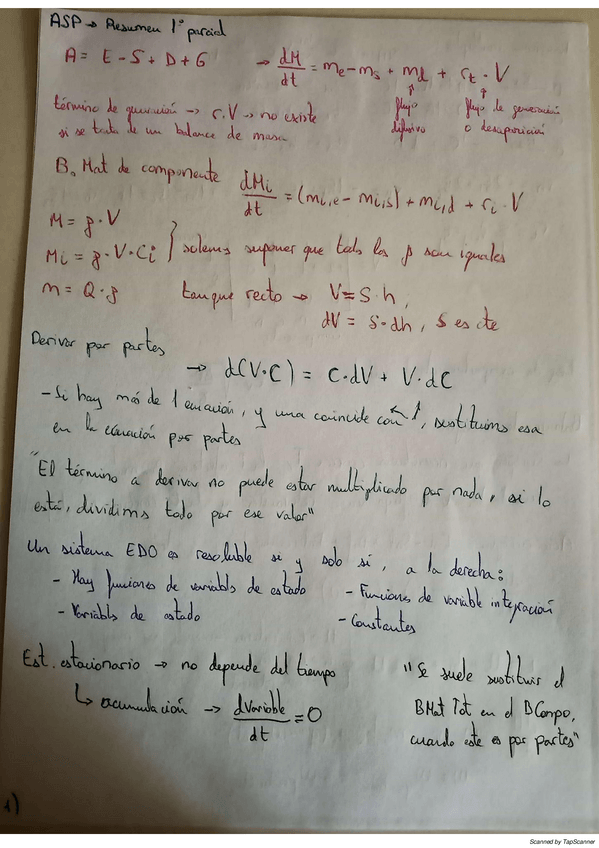 ASP → Resumen 1º parcial
A = E - S + D + G → dM/dt = me - ms + md + rt · V
término de generación → r.V → no existe
si se trata de un balance de masa
flujo difusivo
flujo de generación o desaparición
B. Mat de componente dMi/dt = (mi,e - mi,s) + mi,d + ri · V
M = ρ · V
Mi = ρ · V · Ci } solemos suponer que todas las ρ son iguales
m = Q · ρ tanque recto → V = S·h,
dV = S·dh, S es cte
Derivar por partes
→ d(V·C) = C·dV + V·dC
- Si hay más de 1 ecuación, y una coincide con ↑, sustituimos esa
en la ecuación por partes
"El término a derivar no puede estar multiplicado por nada, si lo
está, dividimos todo por ese valor"
Un sistema EDO es resoluble si y solo si, a la derecha:
- Hay funciones de variables de estado - Funciones de variable integración
- Variables de estado - Constantes
Est. estacionario → no depende del tiempo
↳ acumulación → dvariable/dt = 0
"Se suele sustituir el
BMat Tot en el BCompo,
cuando este es por partes"
1)
Scanned by TapScanner